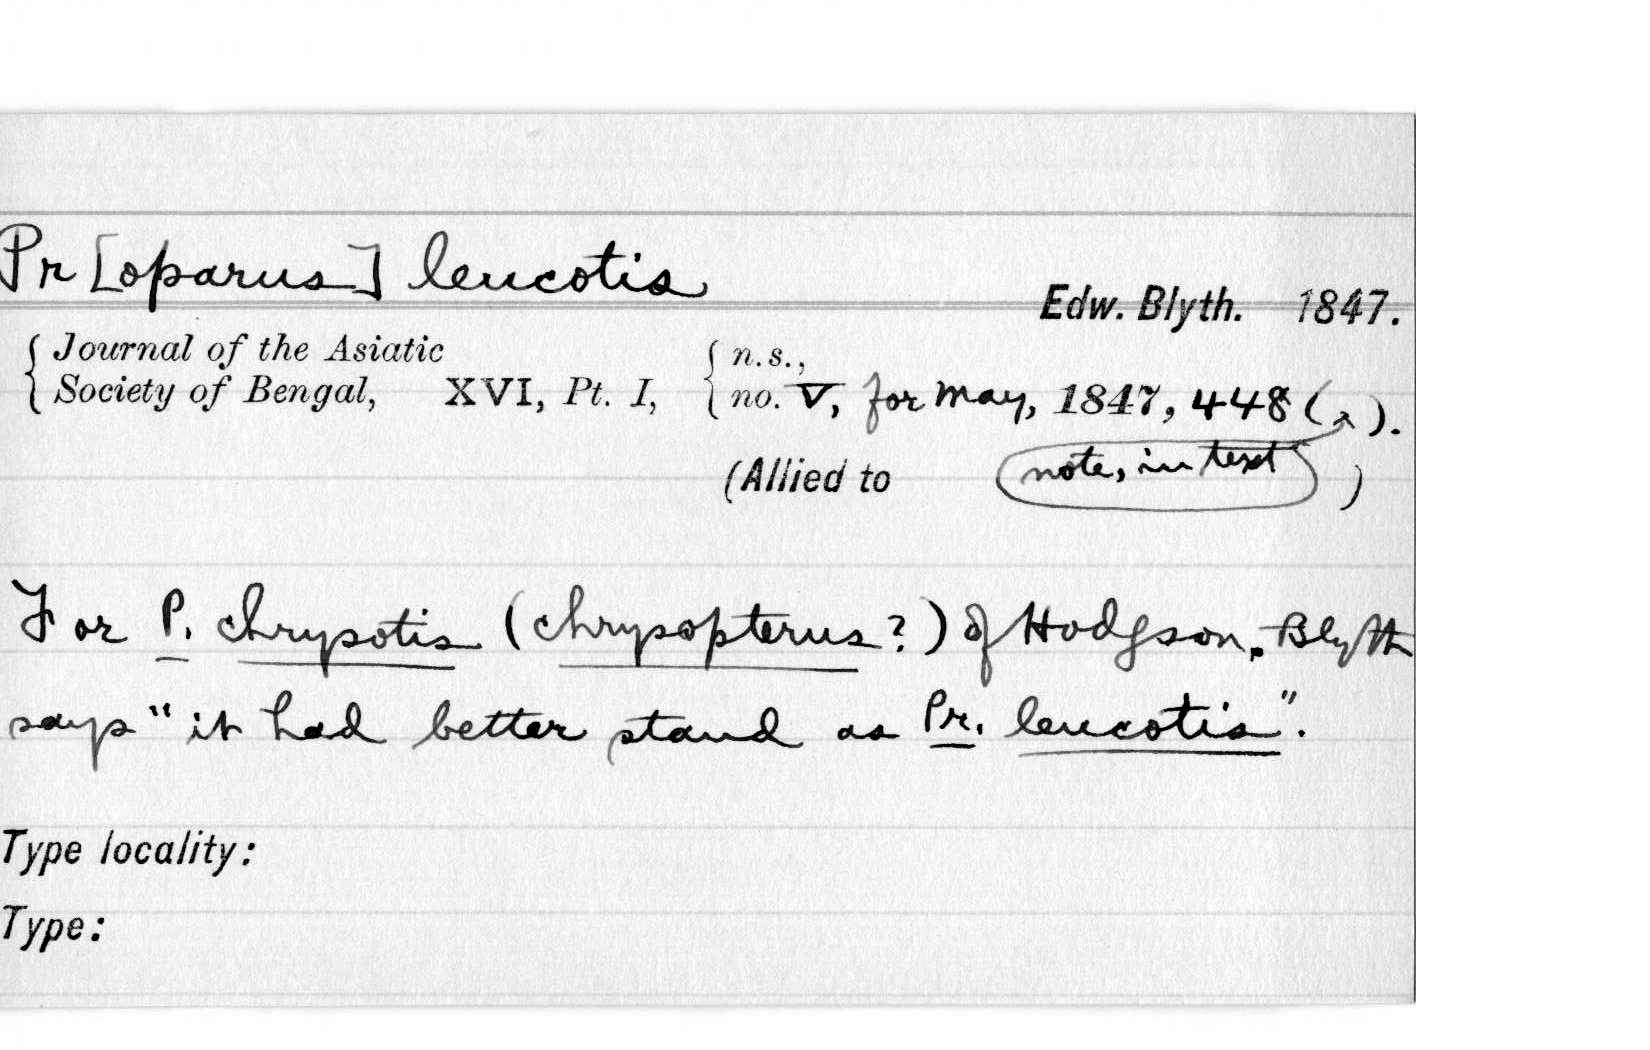 Pr[oparus] leucotis
Edw. Blyth. 1847.
{ Journal of the Asiatic { n.s.,
Society of Bengal, XVI, Pt. I, no. V, for May, 1847, 448 ( ).
(Allied to note, in text )
For P. chrysotis (chrysopterus?) of Hodgson, Blyth
says "it had better stand as Pr. leucotis".
Type locality:
Type: